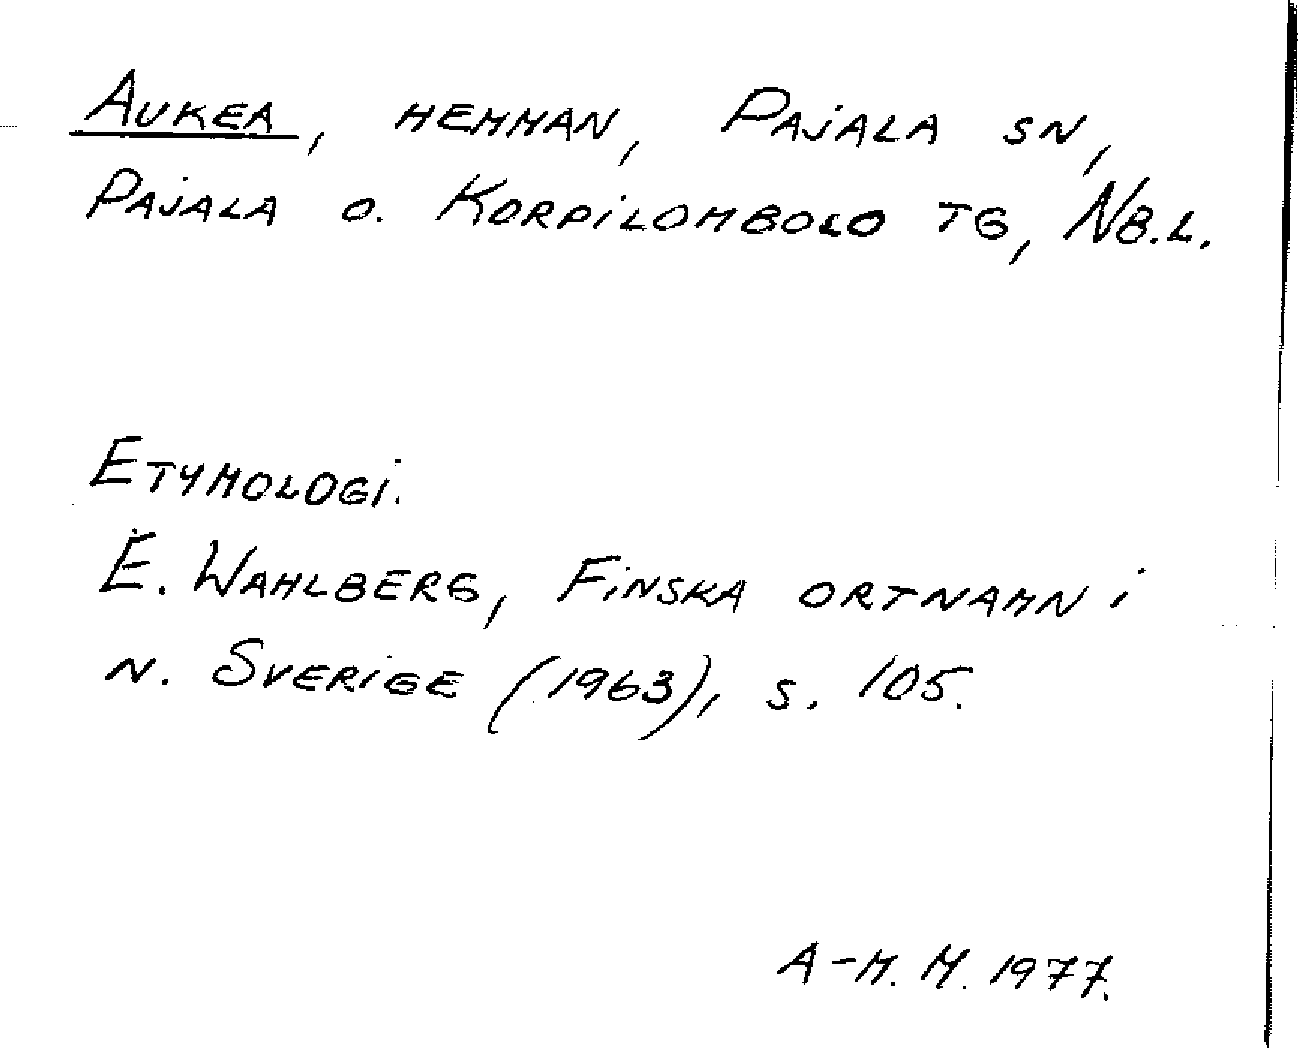 AUKEA, HEMMAN, PAJALA SN,
PAJALA O. KORPILOMBOLO TG, NB.L.
ETYMOLOGI.
E. WAHLBERG, FINSKA ORTNAMN I
N. SVERIGE (1963), S. 105.
A-M. M. 1977.